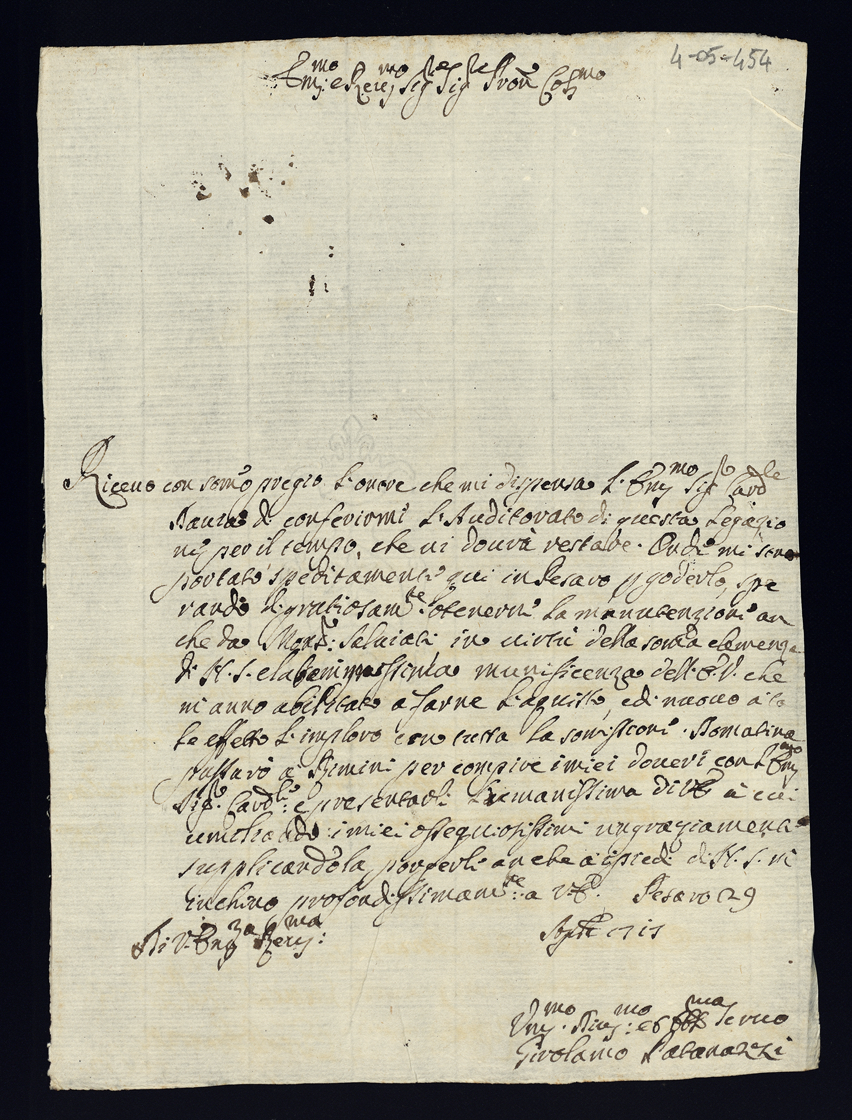 4-05-454
Em.mo e Re.mo Sig.re Sig.re Pron Col.mo
Riceuo con som̃o pregio l'onore che mi dispensa l'Em.mo Sig.r Card.le
di conferirmi l'Auditorato di questa Legazio
ne per il tempo, che ui dourà restare. Onde mi sono
portato speditamente qui in Pesaro p goderlo, spe
rando di gratiosam.te otenerne la manutenzione an
che da Mons.r Saluiati in uirtù della som̃a clemenza
di N. S. e la munificenza dell'E.V. che
mi anno abilitato a farne l'aquisto, e di nuouo a ta
le effetto l'imploro con tutta la somissione. Domatina
passarò a Rimini per compire i miei doueri con l'Em.mo
Sig.r Card.le: e presentarli di V.E. a cui
umiliando i miei ossequiosissimi ringraziamenti
supplicandola porgerli anche a i piedi di N. S. mi
inchino profondissimam.te: a V.E. Pesaro 29
Di V. Em.za Reu.ma: Sept.e 1715
Um.mo Diu.mo: et Obb.ma Seruo
Girolamo